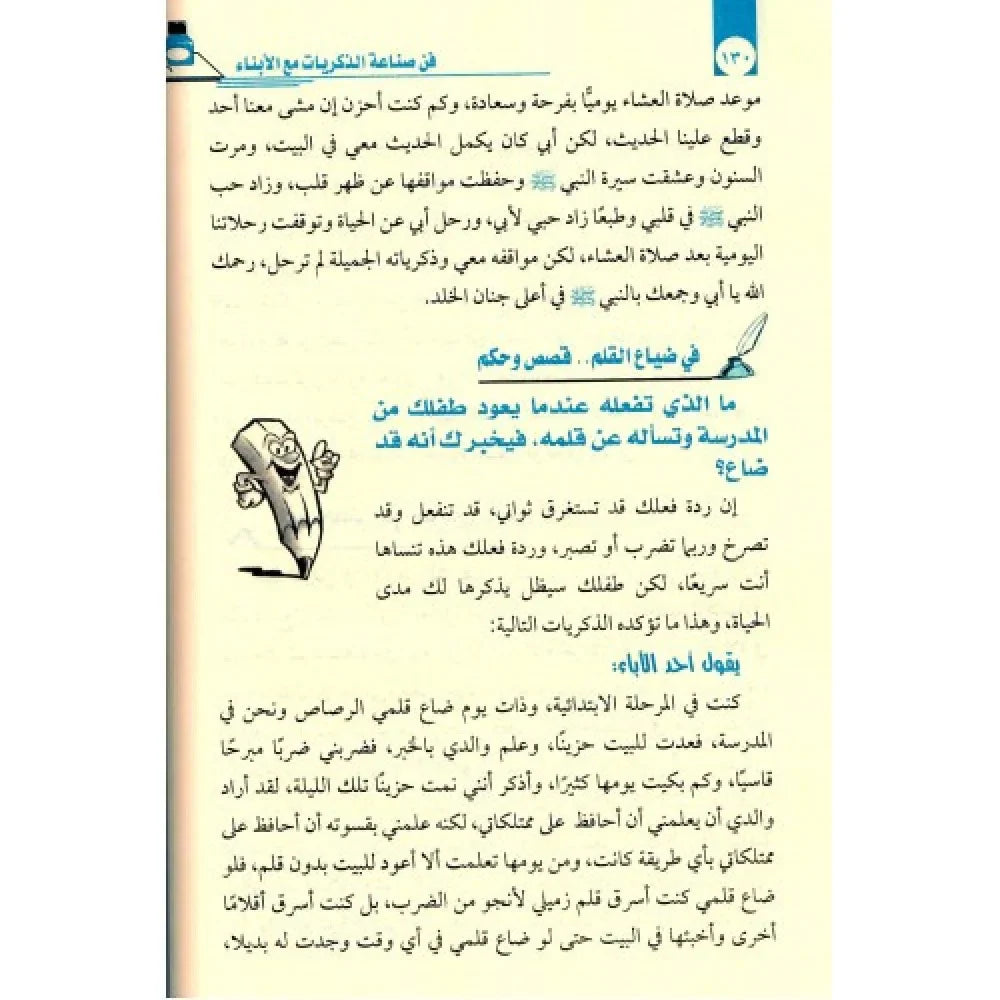 ١٣٠
فن صناعة الذكريات مع الأبناء
موعد صلاة العشاء يوميًّا بفرحة وسعادة، وكم كنت أحزن إن مشى معنا أحد
وقطع علينا الحديث، لكن أبي كان يكمل الحديث معي في البيت، ومرت
السنون وعشقت سيرة النبي ﷺ وحفظت مواقفها عن ظهر قلب، وزاد حب
النبي ﷺ في قلبي وطبعًا زاد حبي لأبي، ورحل أبي عن الحياة وتوقفت رحلاتنا
اليومية بعد صلاة العشاء، لكن مواقفه معي وذكرياته الجميلة لم ترحل، رحمك
الله يا أبي وجمعك بالنبي ﷺ في أعلى جنان الخلد.
في ضياع القلم.. قصص وحكم
ما الذي تفعله عندما يعود طفلك من
المدرسة وتسأله عن قلمه، فيخبرك أنه قد
ضاع؟
إن ردة فعلك قد تستغرق ثواني، قد تنفعل وقد
تصرخ وربما تضرب أو تصبر، وردة فعلك هذه تنساها
أنت سريعًا، لكن طفلك سيظل يذكرها لك مدى
الحياة، وهذا ما تؤكده الذكريات التالية:
يقول أحد الأباء:
كنت في المرحلة الابتدائية، وذات يوم ضاع قلمي الرصاص ونحن في
المدرسة، فعدت للبيت حزينًا، وعلم والدي بالخبر، فضربني ضربًا مبرحًا
قاسيًا، وكم بكيت يومها كثيرًا، وأذكر أنني نمت حزينًا تلك الليلة، لقد أراد
والدي أن يعلمني أن أحافظ على ممتلكاتي، لكنه علمني بقسوته أن أحافظ على
ممتلكاتي بأي طريقة كانت، ومن يومها تعلمت ألا أعود للبيت بدون قلم، فلو
ضاع قلمي كنت أسرق قلم زميلي لأنجو من الضرب، بل كنت أسرق أقلامًا
أخرى وأخبئها في البيت حتى لو ضاع قلمي في أي وقت وجدت له بديلا،